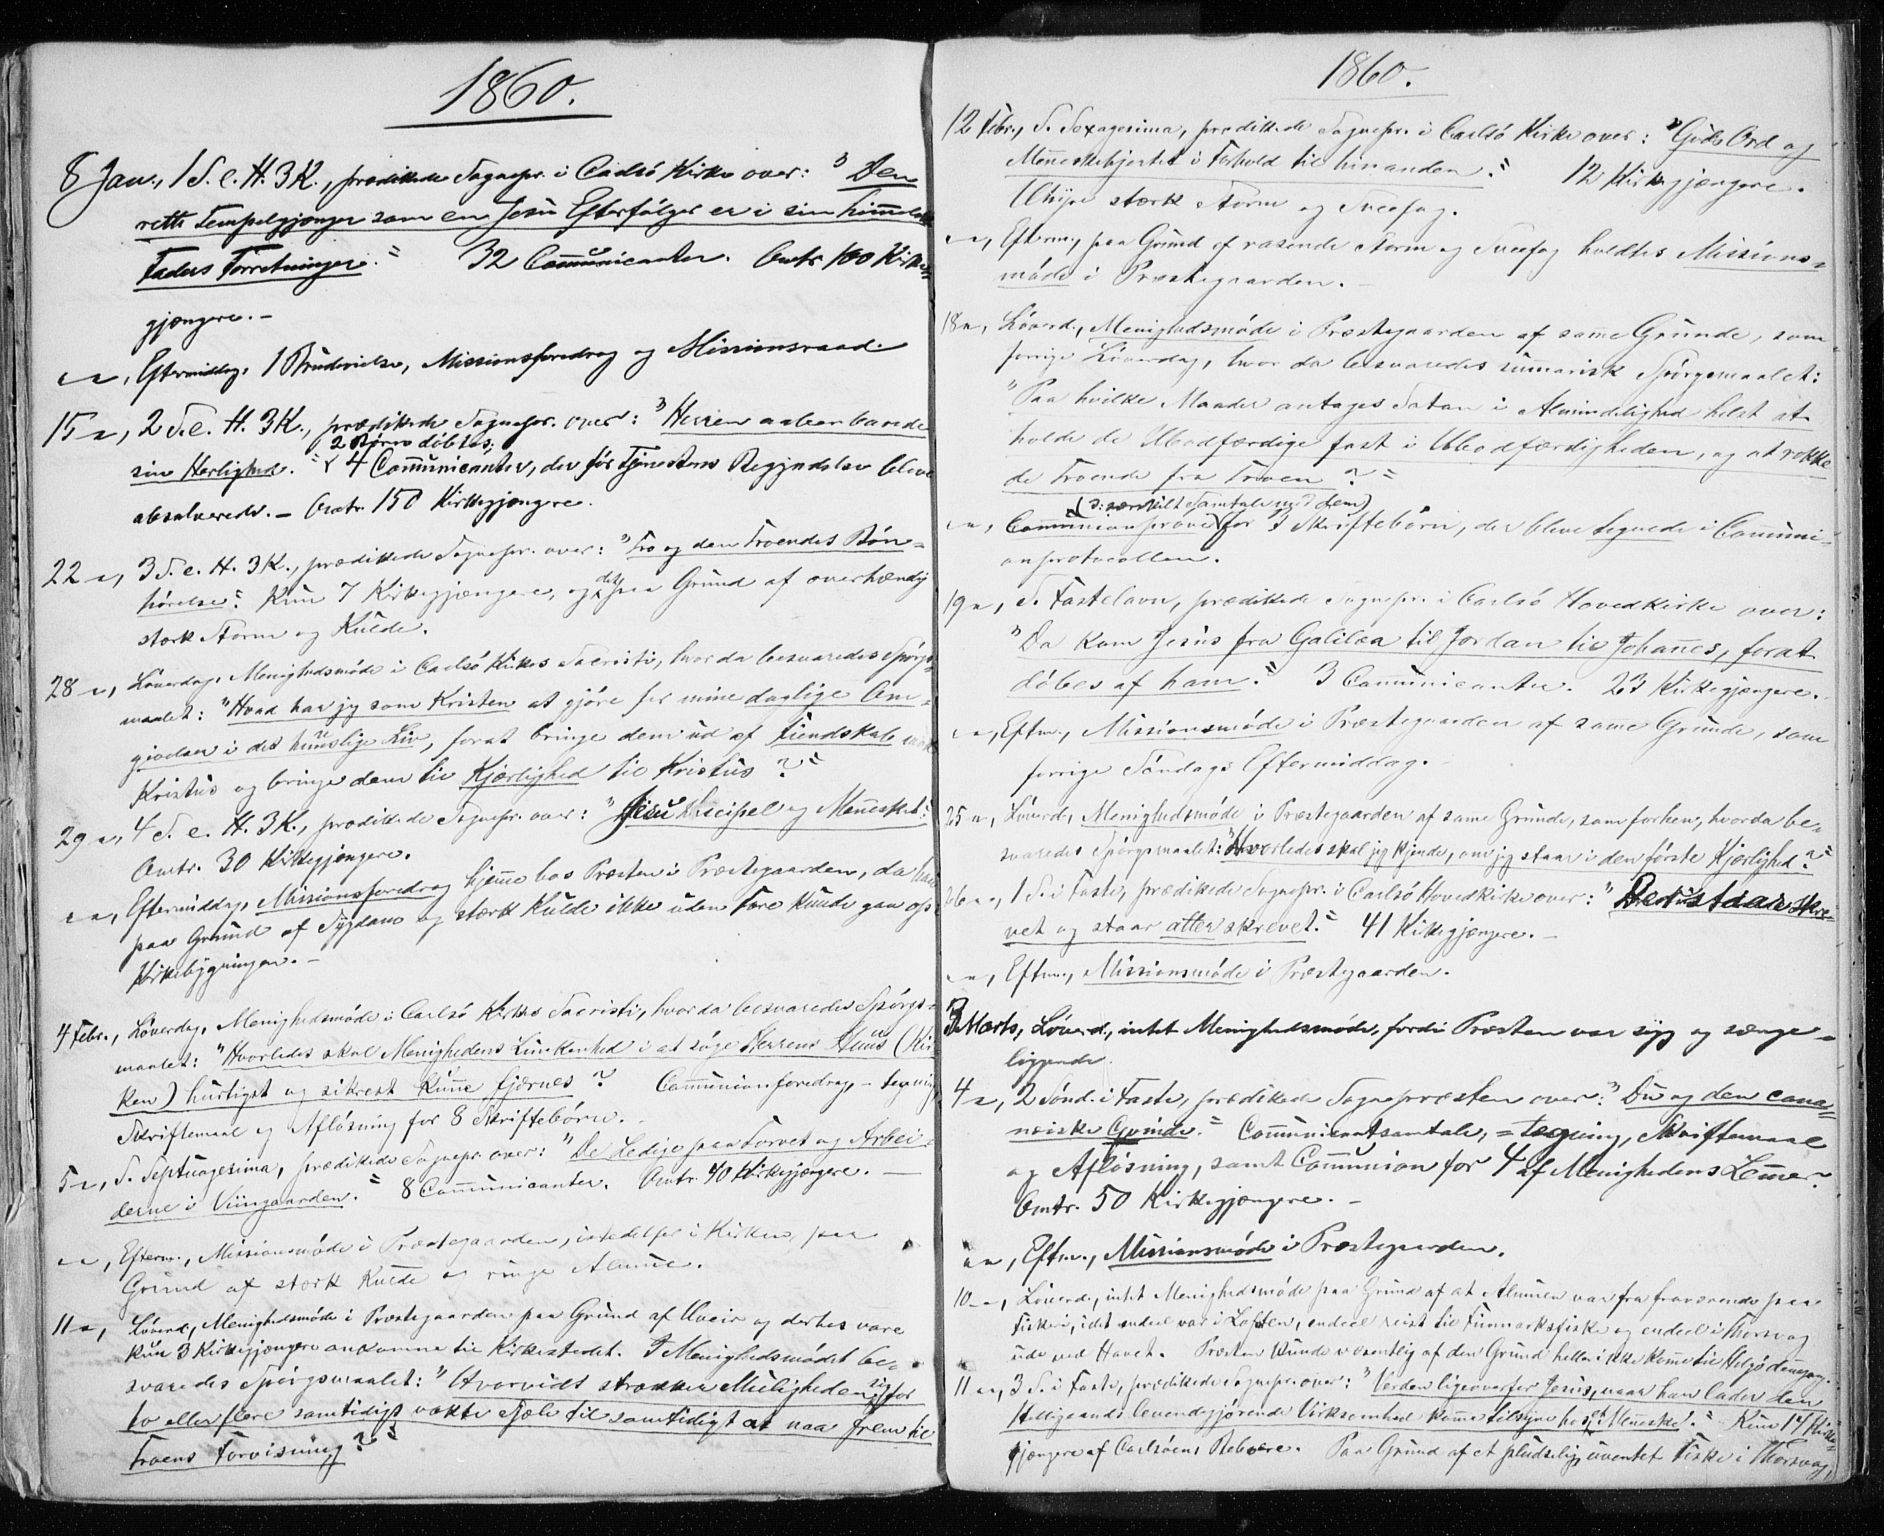 1860.
8 Jan., 1 S. e. H. 3 K., prædikede Sognepr. i Carlsö Kirke over: "Den
rette Tempelgjænger som en Jesu Efterfölger er i sin himmelske
Faders Forretninger." 32 Communicanter. Omtr. 100 Kirke-
gjængere. -
Eftermiddag, 1 Brudevielse, Missionsforedrag og Missionsraad.
15 2 S. e. H. 3 K., prædikede Sognepr. over: "Herren aabenbarede
2 Börn döbtes;
sin Herlighed." 4 Communicanter, der för Tjenestens Begyndelse bleve
absolverede. - Omtr. 150 Kirkegjængere.
22 3 S. e. H. 3 K., prædikede Sognepr. over: "Tro og den Troendes Bön-
hörelse." Kun 7 Kirkegjængere, og det paa Grund af overhændig
stærk Storm og Kulde.
28 Löverdag, Menighedsmöde i Carlsö Kirkes Sacristi, hvor da besvaredes Spörgs-
maalet: "Hvad har jeg som Kristen at gjöre for mine daglige Om-
givelser i det huuslige Liv, forat bringe dem ud af Fiendskab mod
Kristus og bringe dem til Kjærlighed til Kristus?"
29 4 S. e. H. 3 K., prædikede Sognepr. over: "Jesu Discipel og Mennesket."
Omtr. 30 Kirkegjængere.
Eftermiddag, Missionsforedrag hjemme hos Præsten i Præstegaarden, da han
paa Grund af Sygdom og stærk Kulde ikke uden Fare kunde gaa op i
Kirkebygningen. -
4 Febr., Löverdag, Menighedsmöde i Carlsö Kirkes Sacristi, hvor da besvaredes Spörgs-
maalet: "Hvorledes skal Menighedens Lunkenhed i at söge Herrens Huus (Kir-
ken) hurtigst og sikrest kunne fjernes?" Communionforedrag, - tegning,
Skriftemaal og Aflösning for 8 Skriftebörn.
5 S. Septuagesima, prædikede Sognepr. over: "De Ledige paa Torvet og Arbei-
derne i Viingaarden." 8 Communicanter. Omtr. 40 Kirkegjængere. -
Efterm., Missionsmöde i Præstegaarden, istedetfor i Kirken, paa
Grund af stærk Kulde og ringe Almue.
11 Löverd., Menighedsmöde i Præstegaarden paa Grund af Uveir og derhos vare
kun 3 Kirkegjængere ankomne til Kirkestedet. I Menighedsmödet be-
svaredes Spörgsmaalet: "Hvorvidt strækker Muligheden sig for
to eller flere samtidigt vakte Sjæle til samtidigt at naa frem til
Troens Forvisning?"
1860.
12 Febr., S. Sexagesima, prædikede Sognepr. i Carlsö Kirke over: "Guds Ord og
Menneskehjertet i Forhold til hinanden." 12 Kirkegjængere.
Uhyre stærk Storm og Sneefog.
Efterm., paa Grund af rasende Storm og Sneefog holdtes Missions-
möde i Præstegaarden. -
18 Löverd., Menighedsmöde i Præstegaarden af samme Grunde, som
forrige Löverdag, hvor da besvaredes summarisk Spörgsmaalet:
"Paa hvilke Maader antages Satan i Almindelighed helst at
holde de Ubodfærdige fast i Ubodfærdigheden, og at rokke
de Troende fra Troen?"
(ɔ: særskilt Samtale med dem)
Communionpröve for 3 Skriftebörn, der bleve tegnede i Communi-
onprotocollen.
19 S. Fastelavn, prædikede Sognepr. i Carlsö Hovedkirke over:
"Da kom Jesus fra Galilæa til Jordan til Johannes, forat
döbes af ham." 3 Communicanter. 23 Kirkegjængere.
Eftm., Missionsmöde i Præstegaarden af samme Grunde, som
forrige Söndags Eftermiddag. -
25 Löverd., Menighedsmöde i Præstegaarden af samme Grunde, som forhen, hvor da be-
svaredes Spörgsmaalet: "Hvorledes skal jeg kjende, om jeg staar i den förste Kjærlighed?"
26 1 S. i Faste, prædikede Sognepr. i Carlsö Hovedkirke over: "Der staar skre-
vet og staar atter skrevet." 41 Kirkegjængere. -
Eftm., Missionsmöde i Præstegaarden.
3 Marts, Löverd., intet Menighedsmöde, fordi Præsten var syg og senge-
liggende.
4 2 Sönd. i Faste, prædikede Sognepræsten over: "Du og den cana-
næiske Qvinde." Communicantsamtale, - tegning, Skriftemaal
og Aflösning, samt Communion for 4 af Menighedens Lemmer.
Omtr. 50 Kirkegjængere. -
Eftm., Missionsmöde i Præstegaarden.
10 Löverd., intet Menighedsmöde paa Grund af at Almuen var fra fraværende paa
Fiskeri, idet endeel var i Lofoten, endeel reist til Finmarksfiske og endeel i Thorsvaag
ude ved Havet. Præsten kunde væsentlig af den Grund heller ikke komme til Helgö
11 3 S. i Faste, prædikede Sognepr. over: "Verden ligeoverfor Jesus, naar han lader den
Helligaands levendegjörende Virksomhed komme tilsyne hos et Menneske." Kun 14 Kirke-
gjængere af Carlsöens Beboere. Paa Grund af et pludselig, uventet Fiske i Thorsvaag,